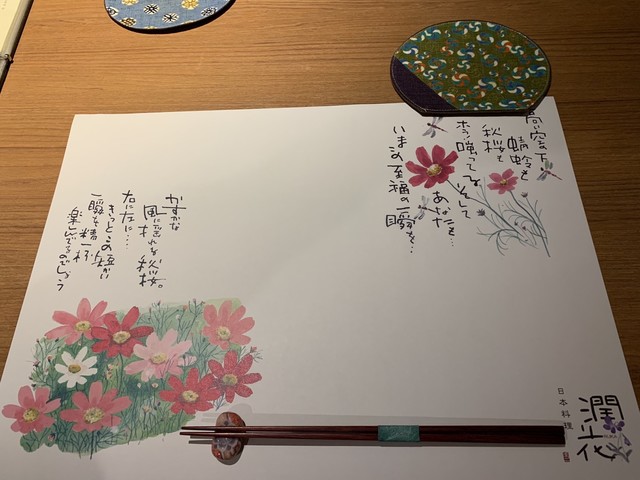 高い空の下
蜻蛉も
秋桜も
ホラ!嗤ってるよ そして
あなたも…
いまこの至福の一瞬を…
かすかな
風に揺れる 秋桜。
右に左に…
きっとこの短かい
一瞬を精一杯
楽しんでるのでしょう
日本料理
潤花